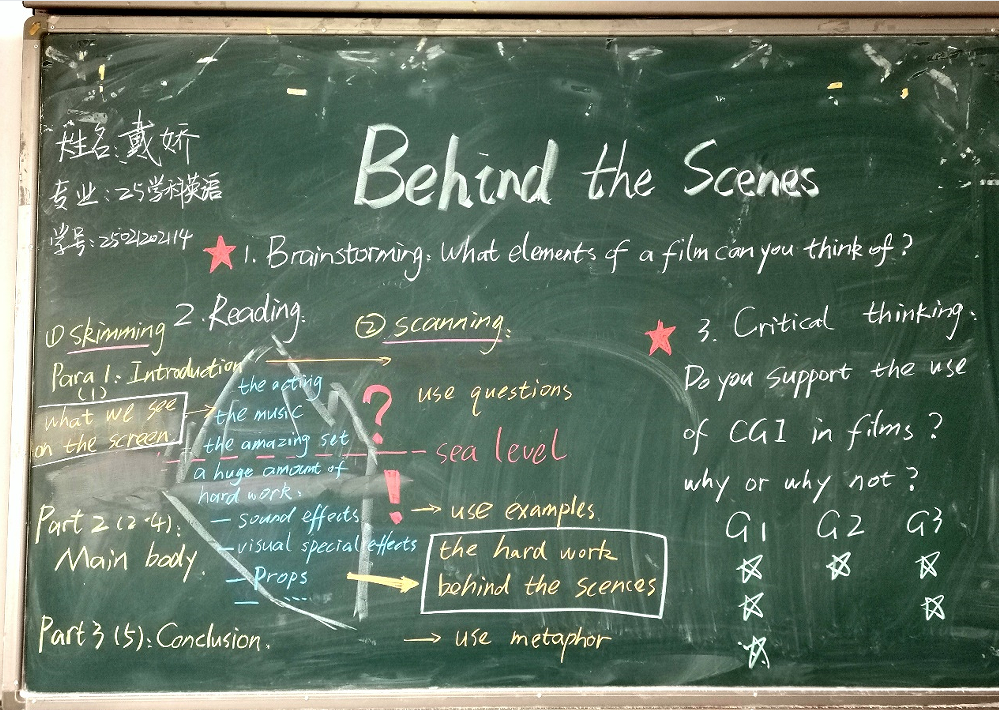 Behind the Scenes
姓名:戴娇
专业:25学科英语
学号:2502120214
1. Brainstorming: What elements of a film can you think of?
2. Reading:
① skimming
② scanning:
Para 1: Introduction
(1)
what we see
on the screen
the acting
the music
the amazing set
?
use questions
sea level
a huge amount of
hard work:
- sound effects
- visual special effects
- Props
- ......
!
Part 2 (2-4):
Main body.
→ use examples
the hard work
behind the scences
Part 3 (5): Conclusion.
→ use metaphor
3. Critical thinking:
Do you support the use
of CGI in films?
why or why not?
G1 G2 G3